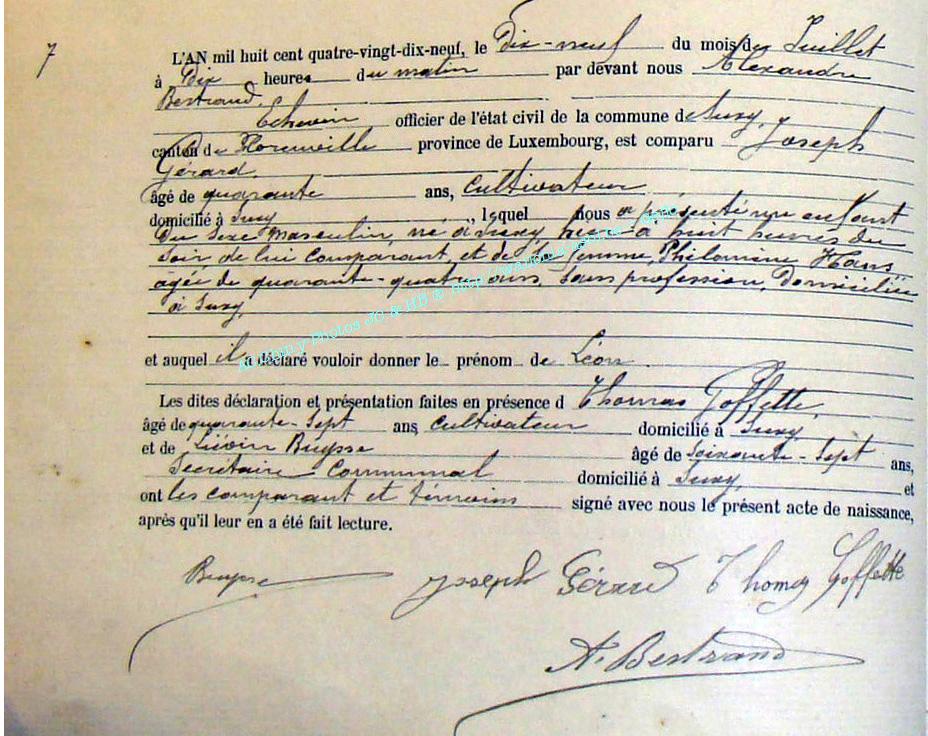 7
L'AN mil huit cent quatre-vingt-dix-neuf, le Dix-neuf du mois de Juillet
à Dix heures du matin par devant nous Alexandre
Bertrand,
Echevin officier de l'état civil de la commune de Suxy,
canton de Florenville province de Luxembourg, est comparu Joseph
Gérard,
âgé de quarante ans, Cultivateur
domicilié à Suxy, lequel nous a présenté un enfant
du sexe masculin, né à Suxy, hier à huit heures du
soir, de lui comparant, et de sa femme, Philomine Hans
agée de quarante-quatre ans, sans profession, Domiciliée
à Suxy,
et auquel il a déclaré vouloir donner le prénom de Léon
Les dites déclaration et présentation faites en présence d Thomas Goffette,
âgé de quarante-Sept ans, Cultivateur domicilié à Suxy,
et de Liévin Buysse âgé de Soixante-Sept ans,
Secrétaire Communal domicilié à Suxy, et
ont les comparant et témoins signé avec nous le présent acte de naissance,
après qu'il leur en a été fait lecture.
Buysse Joseph Gérard Thomas Goffette
A. Bertrand
Photos JC & MB © http://